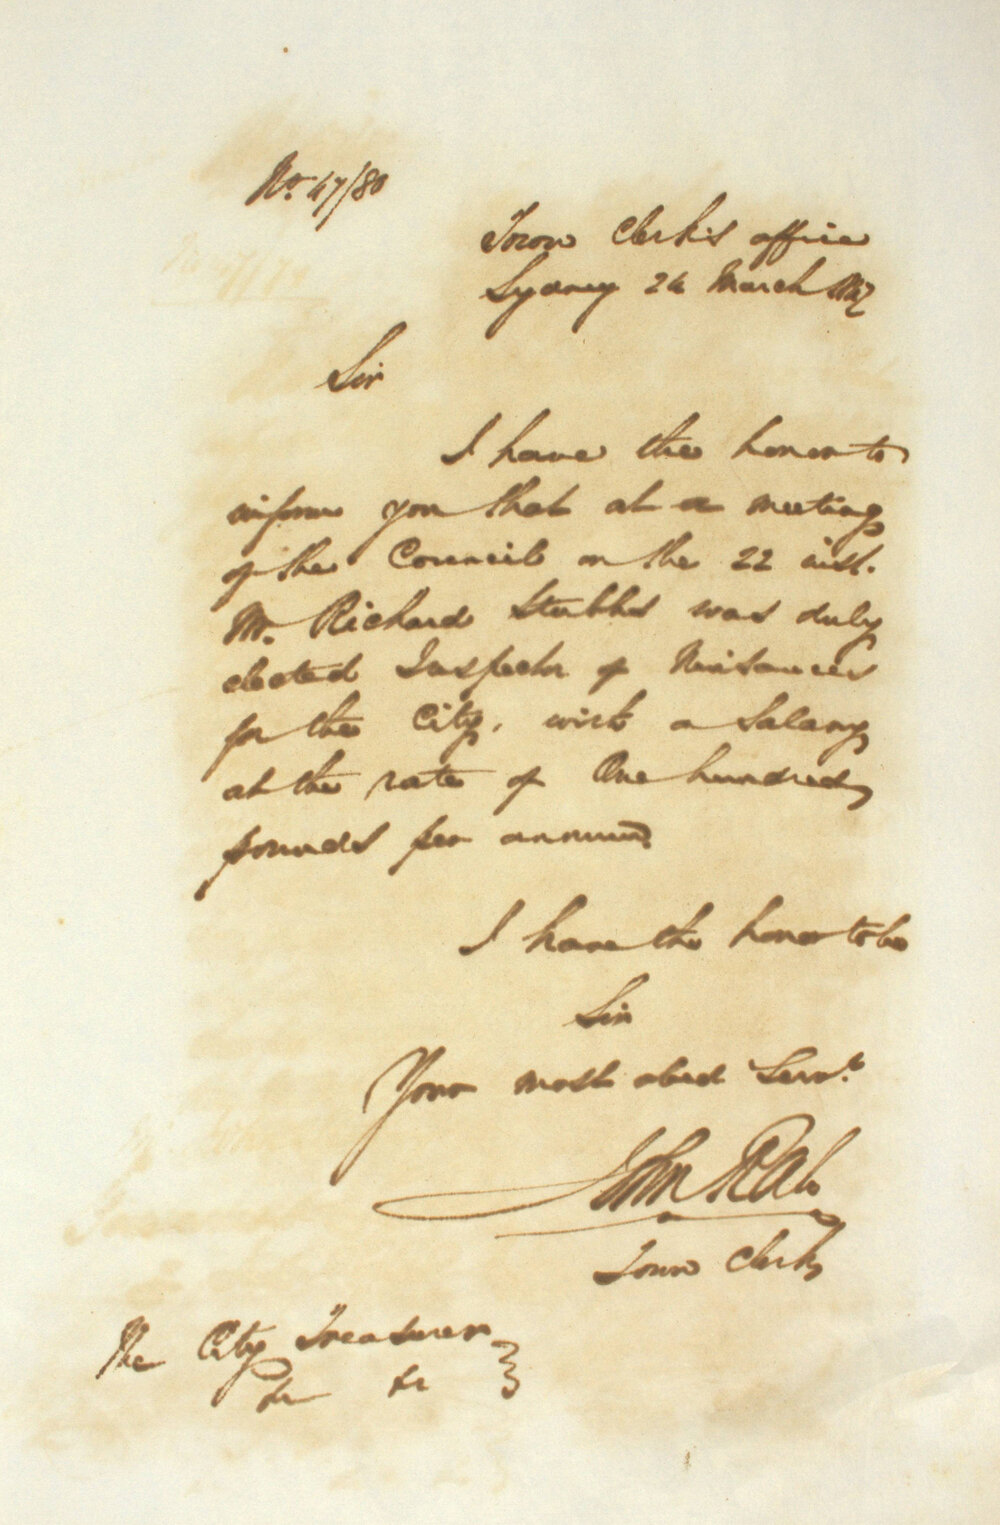 No. 47/80
Town Clerk's office
Sydney 24 March 1847
Sir
I have the honor to
inform you that at a meeting
of the Council on the 22 inst.
Mr. Richard Stubbs was duly
elected Inspector of Nuisances
for the City, with a Salary
at the rate of One hundred
pounds per annum
I have the honor to be
Sir
Your most obed Servt.
John Rae
Town Clerk
The City Treasurer
&c &c